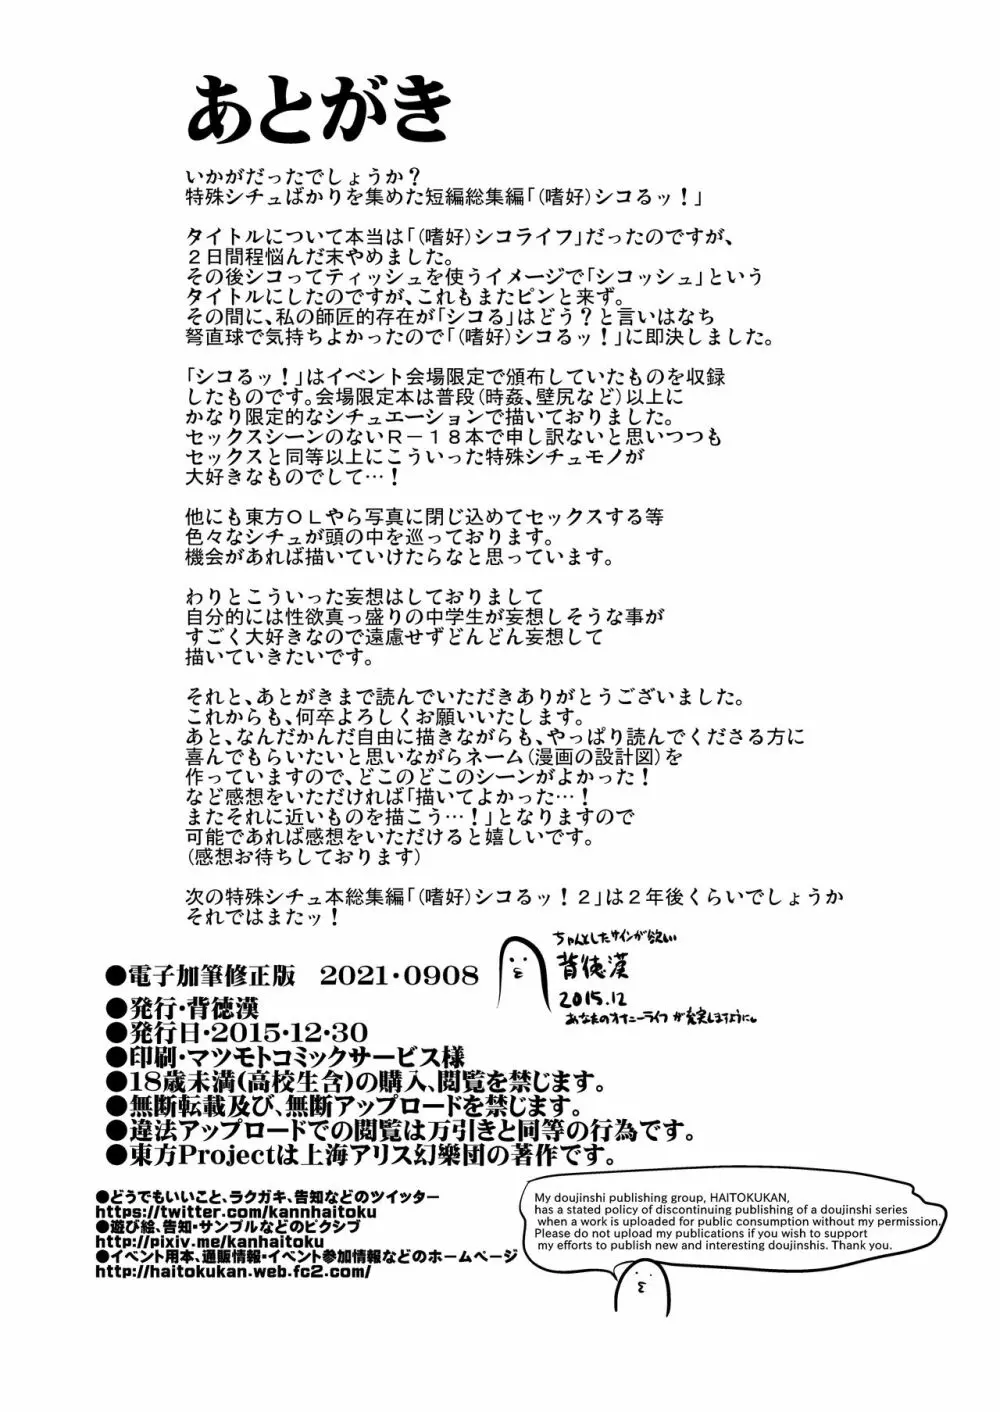 あとがき
いかがだったでしょうか？
特殊シチュばかりを集めた短編総集編「（嗜好）シコるッ！」
タイトルについて本当は「（嗜好）シコライフ」だったのですが、
２日間程悩んだ末やめました。
その後シコってティッシュを使うイメージで「シコッシュ」という
タイトルにしたのですが、これもまたピンと来ず。
その間に、私の師匠的存在が「シコる」はどう？と言いはなち
弩直球で気持ちよかったので「（嗜好）シコるッ！」に即決しました。
「シコるッ！」はイベント会場限定で頒布していたものを収録
したものです。会場限定本は普段（時姦、壁尻など）以上に
かなり限定的なシチュエーションで描いておりました。
セックスシーンのないＲ－１８本で申し訳ないと思いつつも
セックスと同等以上にこういった特殊シチュモノが
大好きなものでして…！
他にも東方ＯＬやら写真に閉じ込めてセックスする等
色々なシチュが頭の中を巡っております。
機会があれば描いていけたらなと思っています。
わりとこういった妄想はしておりまして
自分的には性欲真っ盛りの中学生が妄想しそうな事が
すごく大好きなので遠慮せずどんどん妄想して
描いていきたいです。
それと、あとがきまで読んでいただきありがとうございました。
これからも、何卒よろしくお願いいたします。
あと、なんだかんだ自由に描きながらも、やっぱり読んでくださる方に
喜んでもらいたいと思いながらネーム（漫画の設計図）を
作っていますので、どこのどこのシーンがよかった！
など感想をいただければ「描いてよかった…！
またそれに近いものを描こう…！」となりますので
可能であれば感想をいただけると嬉しいです。
（感想お待ちしております）
次の特殊シチュ本総集編「（嗜好）シコるッ！２」は２年後くらいでしょうか
それではまたッ！
ちゃんとしたサインが欲しい
背徳漢
2015.12
あなたのオナニーライフが充実しますように。
●電子加筆修正版　2021・0908
●発行・背徳漢
●発行日・2015・12・30
●印刷・マツモトコミックサービス様
●18歳未満(高校生含)の購入、閲覧を禁じます。
●無断転載及び、無断アップロードを禁じます。
●違法アップロードでの閲覧は万引きと同等の行為です。
●東方Projectは上海アリス幻樂団の著作です。
●どうでもいいこと、ラクガキ、告知などのツイッター
https://twitter.com/kannhaitoku
●遊び絵、告知・サンプルなどのピクシブ
http://pixiv.me/kanhaitoku
●イベント用本、通販情報・イベント参加情報などのホームページ
http://haitokukan.web.fc2.com/
My doujinshi publishing group, HAITOKUKAN,
has a stated policy of discontinuing publishing of a doujinshi series
when a work is uploaded for public consumption without my permission.
Please do not upload my publications if you wish to support
my efforts to publish new and interesting doujinshis. Thank you.